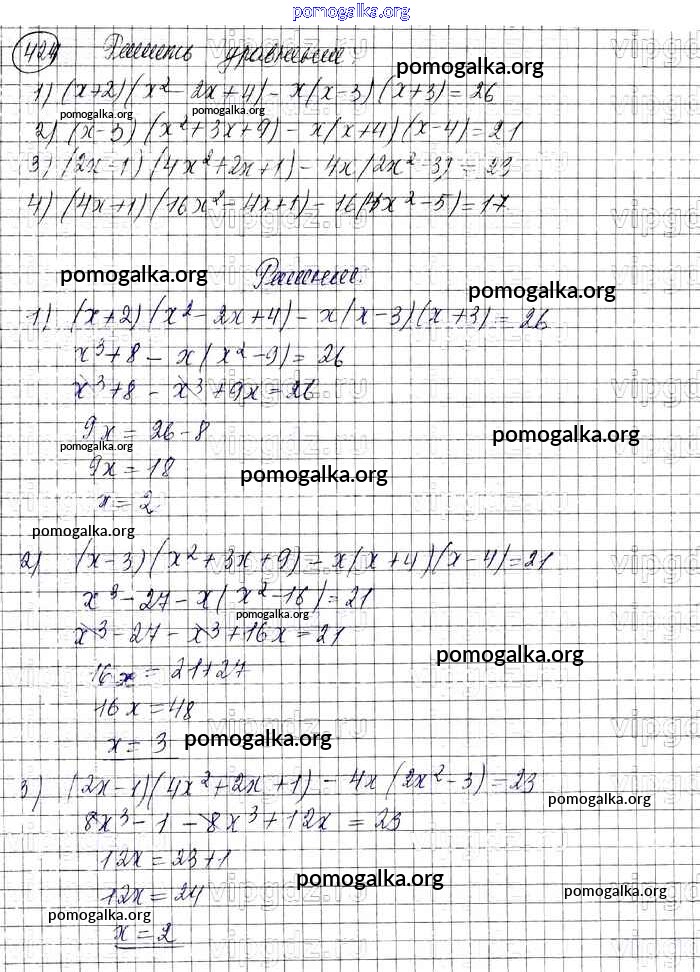 pomogalka.org
424 Решить уравнения:
pomogalka.org
1) (x+2)(x²-2x+4)-x(x-3)(x+3)=26
pomogalka.org pomogalka.org
2) (x-3)(x²+3x+9)-x(x+4)(x-4)=21
3) (2x-1)(4x²+2x+1)-4x(2x²-3)=23
4) (4x+1)(16x²-4x+1)-16x(4x²-5)=17
pomogalka.org Решение:
pomogalka.org
1) (x+2)(x²-2x+4)-x(x-3)(x+3)=26
x³+8-x(x²-9)=26
x³+8-x³+9x=26
9x=26-8
pomogalka.org pomogalka.org
9x=18
pomogalka.org
x=2
pomogalka.org
2) (x-3)(x²+3x+9)-x(x+4)(x-4)=21
x³-27-x(x²-16)=21
pomogalka.org
x³-27-x³+16x=21
pomogalka.org
16x=21+27
16x=48
x=3 pomogalka.org
3) (2x-1)(4x²+2x+1)-4x(2x²-3)=23
pomogalka.org
8x³-1-8x³+12x=23
12x=23+1
pomogalka.org
12x=24 pomogalka.org
pomogalka.org
x=2